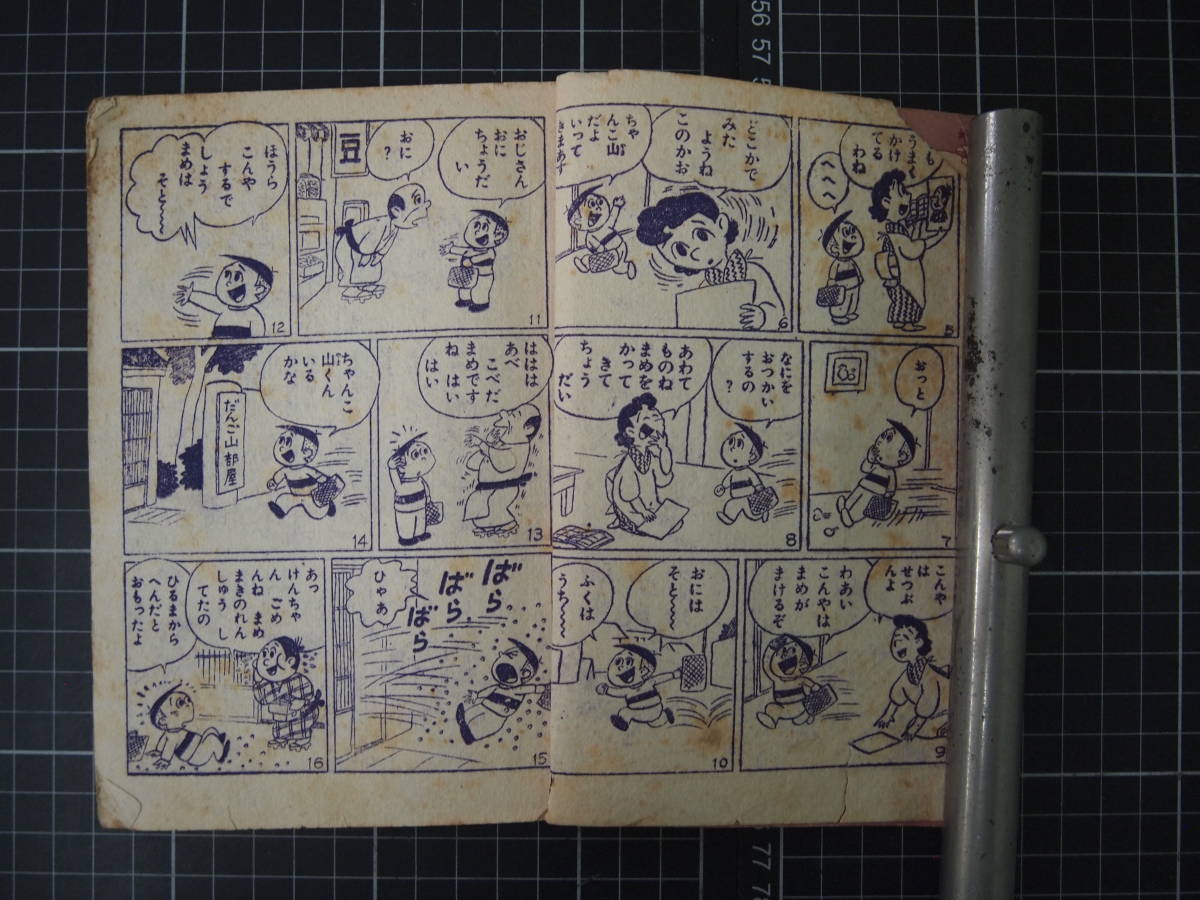 も
うまく
かけ
てる
わね
へへへ
5
どこかで
みた
ようね
このかお
ちゃ
んこ山
だよ
いって
きまあす
6
おっと
7
なにを
おつかい
するの
?
あわて
ものね
まめを
かって
きて
ちょう
だい
8
こんや
は
せつぶ
んよ
わあい
こんやは
まめが
まけるぞ
9
おには
そと〜〜
ふくは
うち〜〜
10
おじさん
おに
ちょうだ
い
おに
?
豆
11
ほうら
こんや
するで
しょう
まめは
そと〜
12
ははは
あべ
こべだ
まめです
ね はい
はい
13
ちゃんこ
山くん
いる
かな
だんご山部屋
14
ばら
ばら
ばら
ひゃあ
15
あっ
けんちゃ
ん ごめ
んね まめ
まきのれん
しゅう し
てたの
ひるまから
へんだと
おもったよ
16
56 57
77